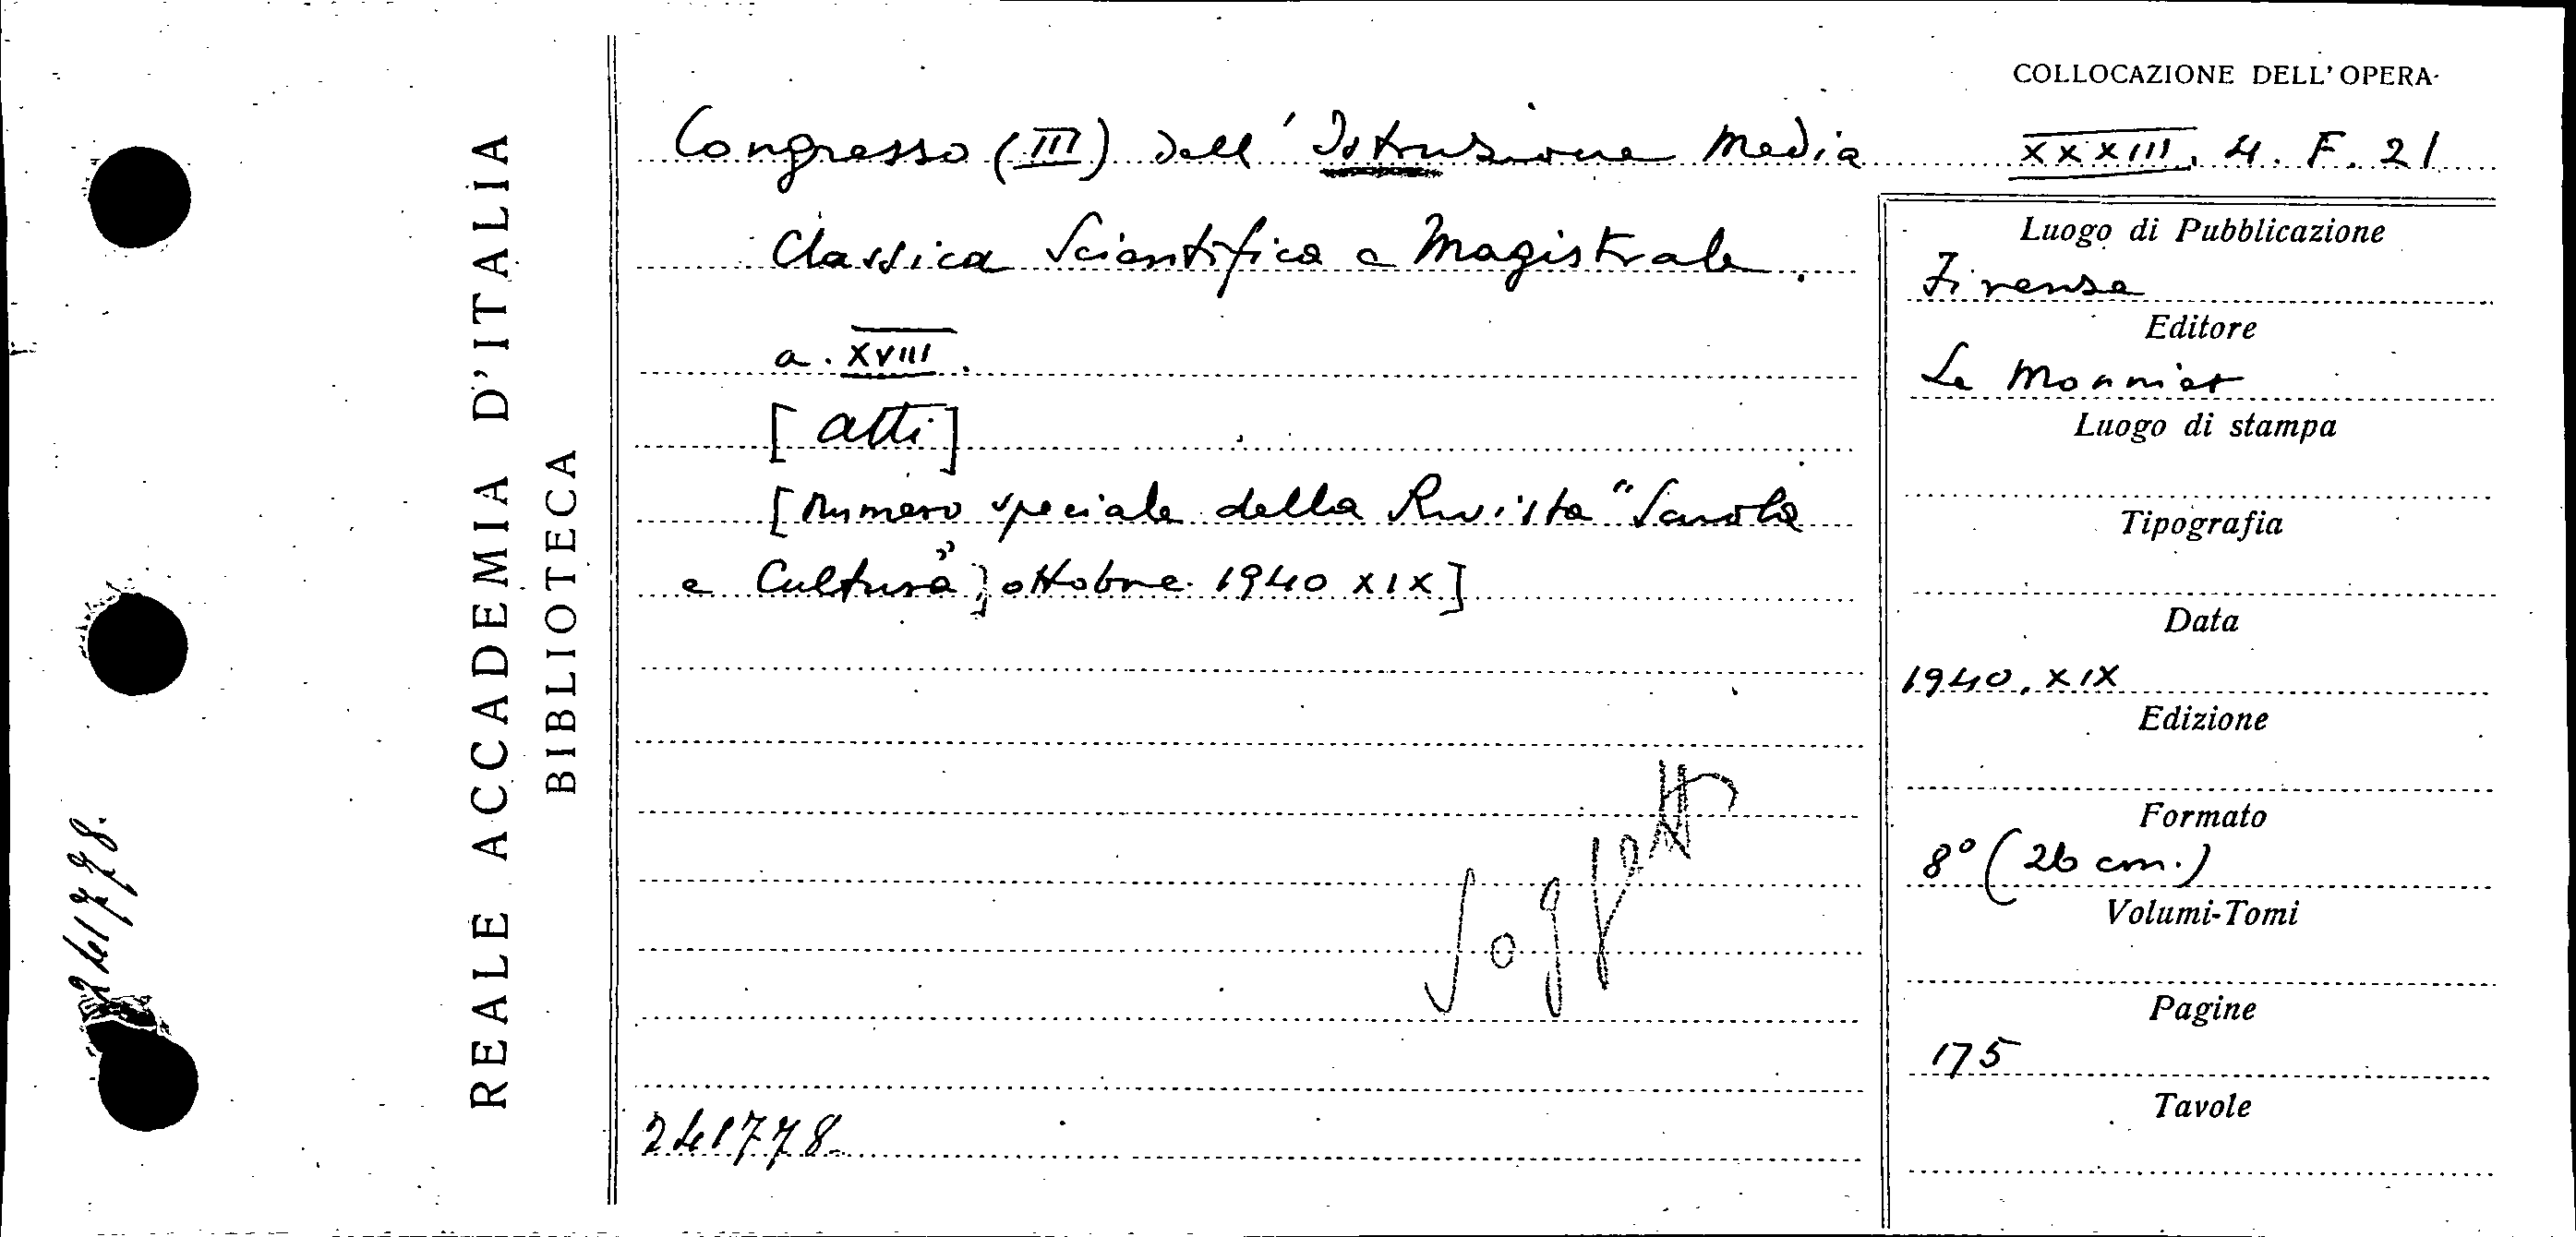 REALE ACCADEMIA D'ITALIA
BIBLIOTECA
241778.
COLLOCAZIONE DELL'OPERA
XXXIII. 4. F. 21
Congresso (III) dell'Istruzione Media
Classica Scientifica e Magistrale.
a. XVIII.
[atti]
[Numero speciale della Rivista "Scuola
e Cultura"] ottobre 1940 XIX]
241778
Luogo di Pubblicazione
Firenze
Editore
Le Monnier
Luogo di stampa
Tipografia
Data
1940. XIX
Edizione
Formato
8° (26 cm.)
Volumi-Tomi
Pagine
175
Tavole